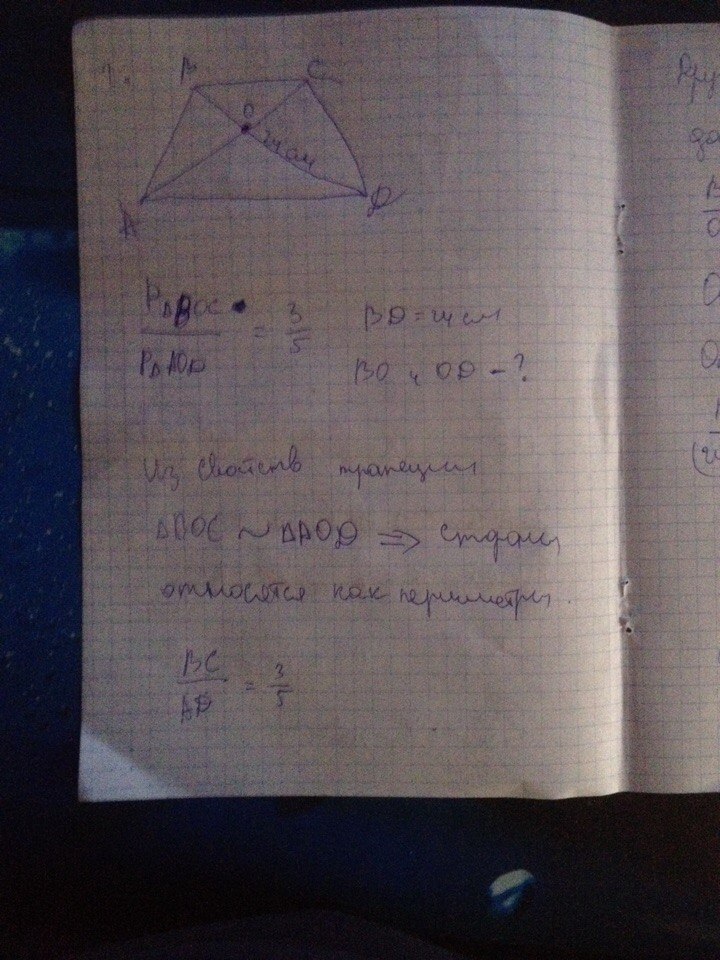 1.
B C
O
24 см
A D
P△BOC / P△AOD = 3/5 BD = 24 см
BO и OD - ?
Из свойств трапеции
△BOC ~ △AOD ⇒ стороны
относятся как периметры.
BC / AD = 3/5